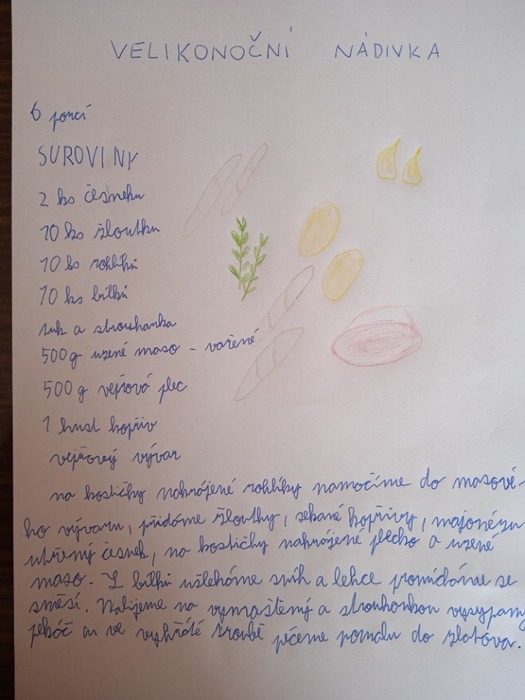 VELIKONOČNÍ NÁDIVKA
6 porcí
SUROVINY
2 ks česneku
10 ks žloutku
10 ks rohlíků
10 ks bílků
tuk a strouhanka
500g uzené maso - vařené
500g vepřová plec
1 hrst kopřiv
vepřový vývar
na kostičky nakrájené rohlíky namočíme do masové-
ho vývaru, přidáme žloutky, sekané kopřivy, majoránku
utřený česnek, na kostičky nakrájené plecko a uzené
maso. Z bílků ušleháme sníh a lehce promícháme se
směsí. Nalijeme na vymaštěný a strouhankou vysypaný
pekáč a ve vyhřáté troubě pečeme pomalu do zlatova.